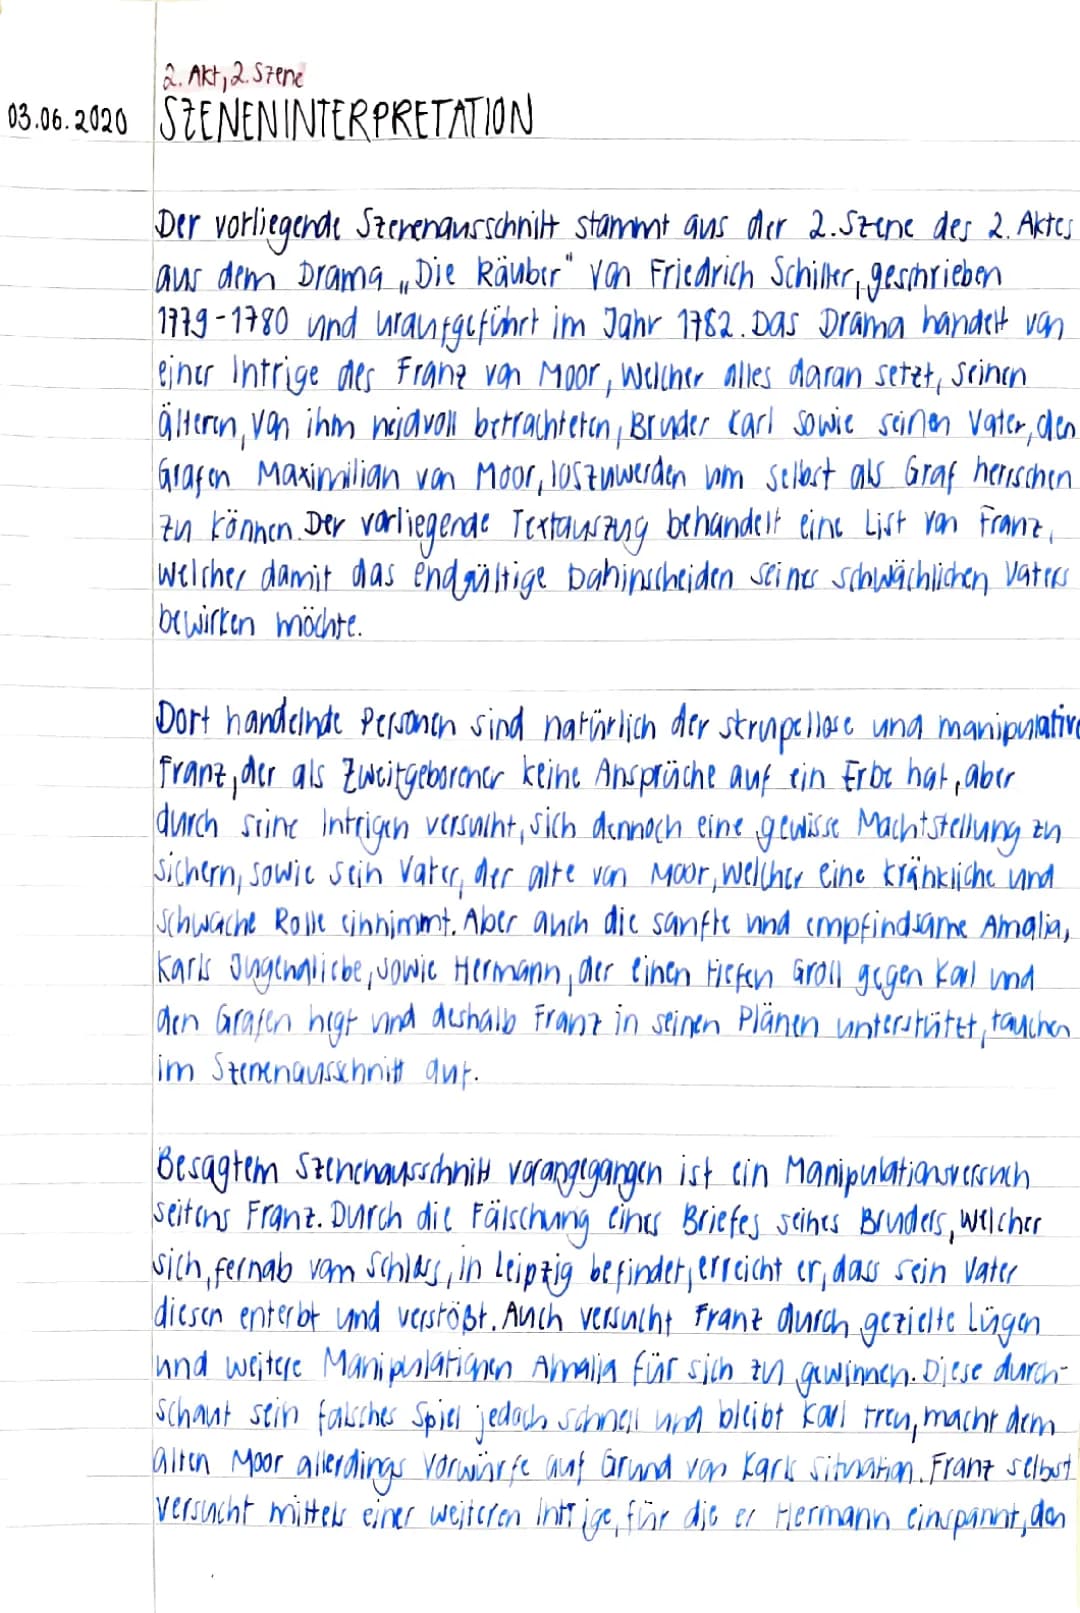 2. Akt, 2. Szene
03.06.2020 SZENENINTERPRETATION
Der vorliegende Szenenausschnitt stammt aus der 2. Szene des 2. Aktes
aus dem Drama „Die Räuber" von Friedrich Schiller, geschrieben
1779-1780 und uraufgeführt im Jahr 1782. Das Drama handelt von
einer Intrige des Franz von Moor, welcher alles daran setzt, seinen
älteren, von ihm neidvoll betrachteten, Bruder Karl sowie seinen Vater, den
Grafen Maximilian von Moor, loszuwerden um selbst als Graf herrschen
zu können. Der vorliegende Textauszug behandelt eine List von Franz,
welcher damit das endgültige Dahinscheiden seines schwächlichen Vaters
bewirken möchte.
Dort handelnde Personen sind natürlich der skrupellose und manipulative
Franz, der als Zweitgeborener keine Ansprüche auf ein Erbe hat, aber
durch seine Intrigen versucht, sich dennoch eine gewisse Machtstellung zu
sichern, sowie sein Vater, der alte von Moor, welcher eine kränkliche und
schwache Rolle einnimmt. Aber auch die sanfte und empfindsame Amalia,
Karls Jugendliebe, sowie Hermann, der einen tiefen Groll gegen Karl und
den Grafen hegt und deshalb Franz in seinen Plänen unterstützt, tauchen
im Szenenausschnitt auf.
Besagtem Szenenausschnitt vorangegangen ist ein Manipulationsversuch
seitens Franz. Durch die Fälschung eines Briefes seines Bruders, welcher
sich, fernab vom Schloss, in Leipzig befindet, erreicht er, dass sein Vater
diesen enterbt und verstößt. Auch versucht Franz durch gezielte Lügen
und weitere Manipulationen Amalia für sich zu gewinnen. Diese durch-
schaut sein falsches Spiel jedoch schnell und bleibt Karl treu, macht dem
alten Moor allerdings Vorwürfe auf Grund von Karls Situation. Franz selbst
versucht mittels einer weiteren Intrige, für die er Hermann einspannt, den